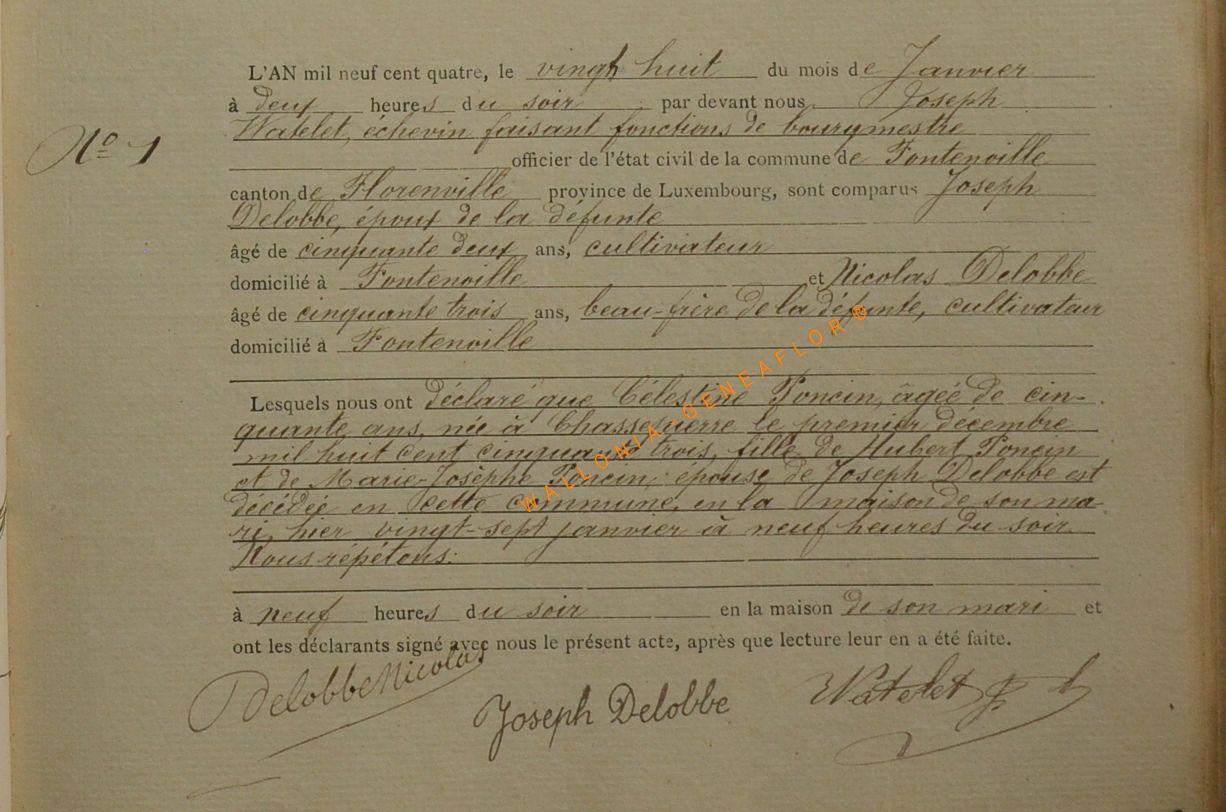 L'AN mil neuf cent quatre, le vingt huit du mois de Janvier
à deux heures du soir par devant nous Joseph
Watelet, échevin faisant fonctions de bourgmestre
N° 1
officier de l'état civil de la commune de Fontenoille
canton de Florenville province de Luxembourg, sont comparus Joseph
Delobbe, époux de la défunte
âgé de cinquante deux ans, cultivateur
domicilié à Fontenoille et Nicolas Delobbe
âgé de cinquante trois ans, beau-frère de la défunte, cultivateur
domicilié à Fontenoille
Lesquels nous ont déclaré que Célestine Poncin, âgée de cin-
quante ans, née à Chassepierre le premier décembre
mil huit cent cinquante trois, fille de Hubert Poncin
et de Marie-Josèphe Poncin, épouse de Joseph Delobbe est
décédée en cette commune, en la maison de son ma-
ri, hier vingt-sept janvier à neuf heures du soir.
Nous répétons:
à neuf heures du soir en la maison de son mari et
ont les déclarants signé avec nous le présent acte, après que lecture leur en a été faite.
Delobbe Nicolas
Joseph Delobbe
Watelet J
WALLONIA-GENEAFLOR©